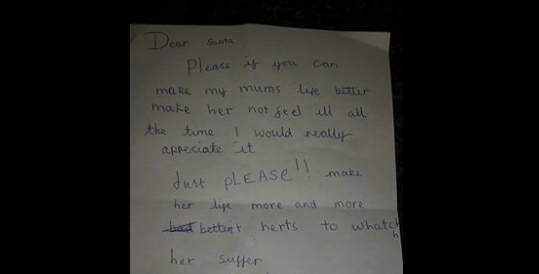 Dear Santa
Please if you can
make my mums life better
make her not feel ill all
the time I would really
apreciate it
Just PLEASE!! make
her life more and more
bettert herts to whatch
her suffer